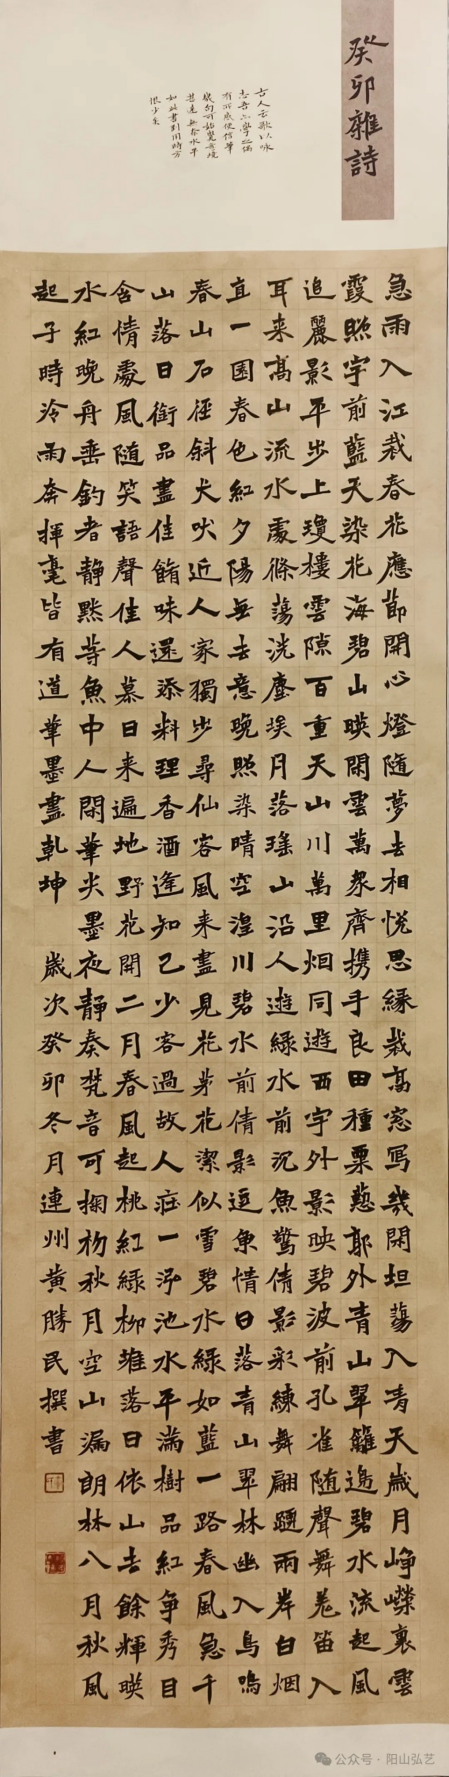 癸卯雜詩
古人云歌以咏
志吾亦學之偶
有所感便信筆
成句可
甚遠
如此書到用時方
恨少矣
急雨入江栽春花應節開心燈隨夢去相悅思緣栽高窓寫幾閑坦蕩入青天歲月崢嶸裏雲
霞照宇前藍天染花海碧山映閑雲萬衆齊攜手良田種粟懃郭外青山翠籬邊碧水流起風
追麗影平步上瓊樓雲隙百重天山川萬里烟同遊西宇外影映碧波前孔雀随聲舞羌笛入
耳来高山流水處滌蕩洗塵埃月落瑤山沿人遊緑水前沉魚驚倩影彩練舞翩躚兩岸白烟
直一園春色紅夕陽無去意晚照染晴空湟川碧水前倩影逗魚情日落青山翠林幽入鳥鳴
春山石徑斜犬吠近人家獨步尋仙客風来盡見花茅花潔似雪碧水緑如藍一路春風急千
山落日銜品盡佳餚味還添料理香酒逢知己少客過故人莊一渟池水平满樹品紅争秀目
含情處風随笑語聲佳人慕日来遍地野花開二月春風起桃紅緑柳堆落日依山去餘輝映
水紅晚舟垂釣者静默等魚中人閑筆尖墨夜静奏梵音可掬初秋月空山漏朗林八月秋風
起子時冷雨奔揮毫皆有道筆墨盡乾坤 歲次癸卯冬月連州黄勝民撰書
公众号·阳山弘艺